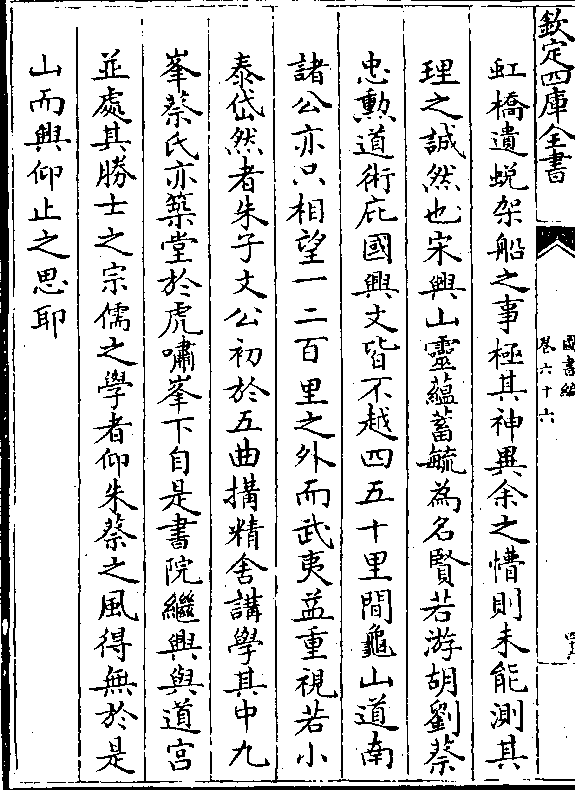 欽定四庫全書
圖書編
卷六十六
虹橋遺蛻架船之事極其神異余之懵則未能測其
理之誠然也宋興山靈蘊蓄毓為名賢若游胡劉蔡
忠勲道術庇國興文皆不越四五十里間龜山道南
諸公亦只相望一二百里之外而武夷益重視若小
泰岱然者朱子文公初於五曲搆精舍講學其中九
峯蔡氏亦築堂於虎嘯峯下自是書院繼興與道宫
並處其勝士之宗儒之學者仰朱蔡之風得無於是
山而興仰止之思耶